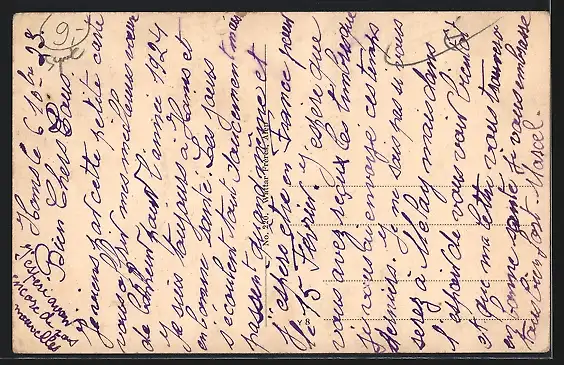 9.-
Homs le 6 10bre 23
Bien Chers Parents
Je viens par cette petite carte
vous offrir mes meilleurs vœux
de bonheur pour l'année 1924
Je suis toujours à Homs et
en bonne santé. Les jours
s'écoulent tout doucement mais
passent de même et
J'espère être en France pour
le 15 Février. J'espère que
vous avez reçu le
je vous ai envoyé ces temps
derniers. Je ne sais pas si vous
serez à mais dans
l'espoir de vous voir bientôt
et que ma lettre vous trouvera
en bonne santé Je vous embrasse
tous bien fort Marcel.
J'espère avoir
encore de vos
nouvelles